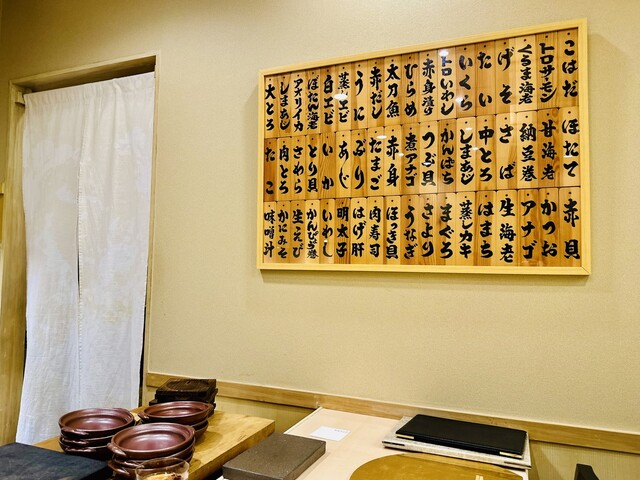 こはだ
トロサーモン
くるま海老
げそ
たい
いくら
トロいわし
赤身漬け
ひらめ
太刀魚
赤だし
うに
蒸エビ
白エビ
ぼたん海老
アオリイカ
しまあじ
大とろ
ほたて
甘海老
納豆巻
さば
中とろ
しまあじ
かんぱち
つぶ貝
煮アナゴ
赤身
たまご
ぶり
あじ
いか
とり貝
さわら
肉とろ
たこ
赤貝
かつお
アナゴ
生海老
はまち
蒸しカキ
まぐろ
さより
うなぎ
ほっき貝
肉寿司
はげ肝
明太子
いわし
かんぴょう巻
生えび
かにみそ
味噌汁